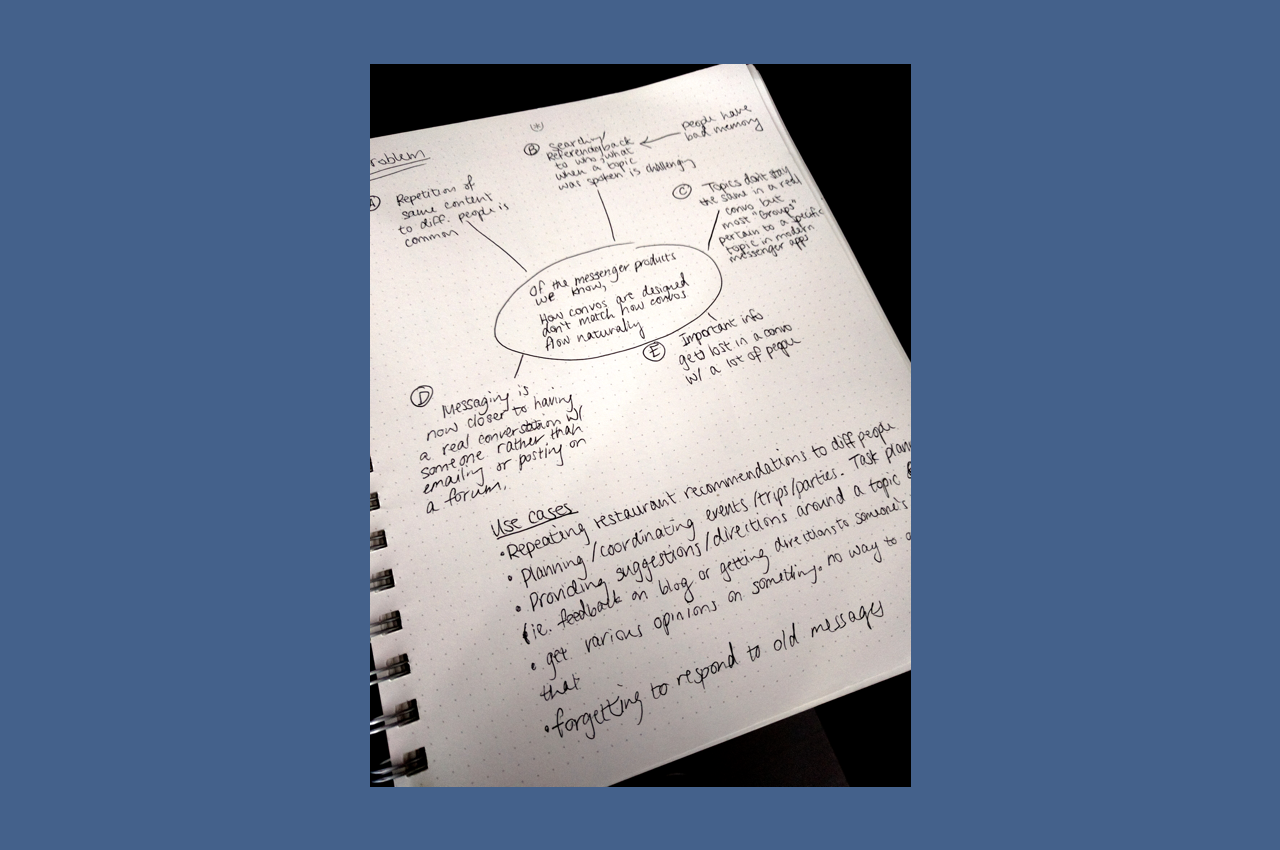 roblem
(*)
B Searching/
Referencing back
to who, what
when a topic
was spoken is challenging
people have
bad memory
A Repetition of
same content
to diff. people is
common
C Topics don't stay
the same in a real
convo but
most "Groups"
pertain to a specific
topic in modern
messenger apps
Of the messenger products
we know,
How convos are designed
don't match how convos
flow naturally
E Important info
gets lost in a convo
w/ a lot of people
D Messaging is
now closer to having
a real conversation w/
someone rather than
emailing or posting on
a forum.
Use cases
• Repeating restaurant recommendations to diff people
• Planning/coordinating events/trips/parties. Task plann
• Providing suggestions/directions around a topic
(ie. feedback on blog or getting directions to someone's
• get various opinions on something. no way to
that
• forgetting to respond to old messages